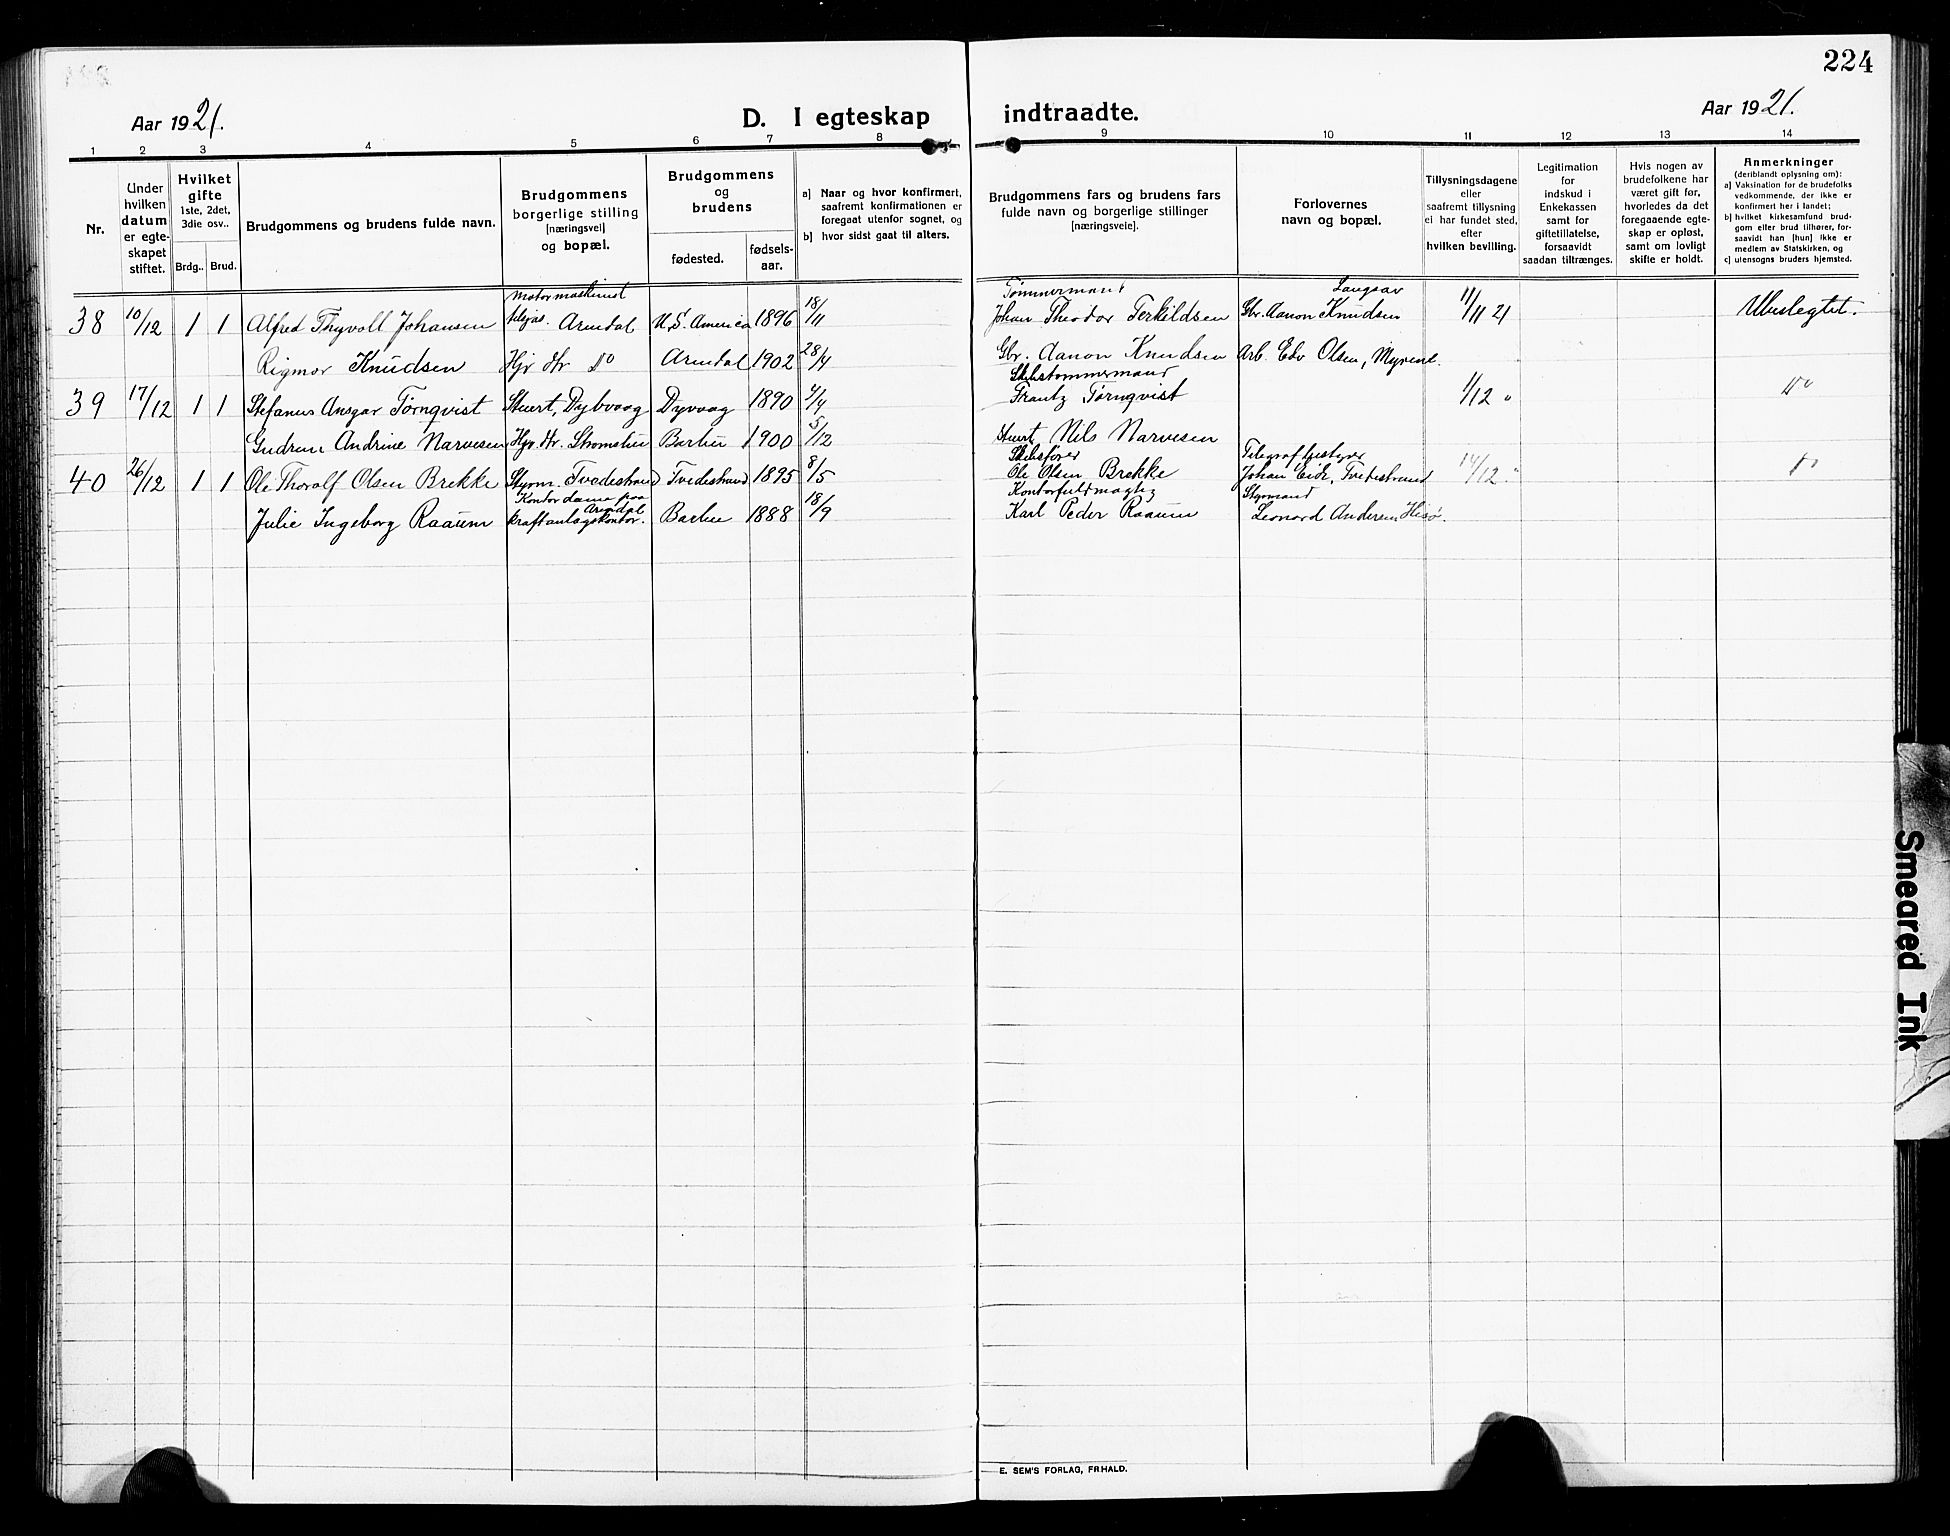 224
Aar 1921.
D. I egteskap indtraadte.
Aar 1921.
1 2 3 4 5 6 7 8 9 10 11 12 13 14
Nr.
Under hvilken datum er egte-skapet stiftet.
Hvilket gifte 1ste, 2det, 3die osv..
Brdg.. Brud.
Brudgommens og brudens fulde navn.
Brudgommens borgerlige stilling [næringsvei] og bopæl.
Brudgommens og brudens
fødested.
fødsels-aar.
a) Naar og hvor konfirmert, saafremt konfirmationen er foregaat utenfor sognet, og
b) hvor sidst gaat til alters.
Brudgommens fars og brudens fars fulde navn og borgerlige stillinger [næringsveie].
Forlovernes navn og bopæl.
Tillysningsdagene eller saafremt tillysning ei har fundet sted, efter hvilken bevilling.
Legitimation for indskud i Enkekassen samt for giftetillatelse, forsaavidt saadan tiltrænges.
Hvis nogen av brudefolkene har været gift før, hvorledes da det foregaaende egte-skap er opløst, samt om lovligt skifte er holdt.
Anmerkninger (deriblandt oplysning om):
a) Vaksination for de brudefolks vedkommende, der ikke er konfirmert her i landet;
b) hvilket kirkesamfund brud-gom eller brud tilhører, for-saavidt han [hun] ikke er medlem av Statskirken, og
c) utensogns bruders hjemsted.
Motormaskinist Tømmermand Langsæv
38 10/12 1 1 Alfred Thyvoll Johansen Arendal U.S. America 1896 18/11 Johan Theodor Terkildsen Gbr. Aanon Knudsen 11/11 21 Ubeslegtet.
Rigmor Knudsen Hjv. Dtr Do Arendal 1902 28/4 Gbr. Aanon Knudsen Arb. Edv Olsen, Myrene.
Skibstømmermand
39 17/12 1 1 Stefanus Ansgar Tørnqvist Stuert, Dybvaag Dyvaag 1890 2/4 Frantz Tørnqvist 1/12 " Do
Gudrun Andrine Narvesen Hjv. Dtr. Strømsbu Barbu 1900 5/12 Stuert Nils Narvesen
Skibsfører Telegrafbestyrer
40 26/12 1 1 Ole Thoralf Olsen Brekke Styrm. Tvedestrand Tvedestrand 1895 8/5 Ole Olsen Brekke Johan Eide, Tvedestrand 14/12 " Do
Kontordame paa Arendal Kontorfuldmægtig Styrmand
Julie Ingeborg Raaum kraftanlægskontor. Barbu 1888 18/9 Karl Peder Raaum Leonard Andersen Hisø.
E. SEM'S FORLAG, FR.HALD.
Smeared Ink